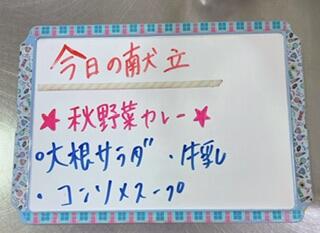 今日の献立
★秋野菜カレー★
○大根サラダ ・牛乳
・コンソメスープ